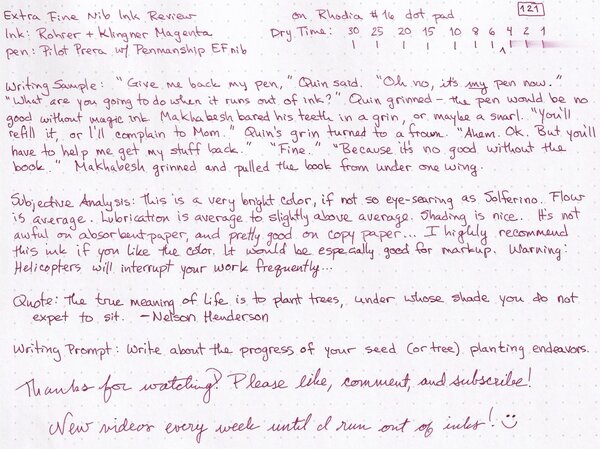 Extra Fine Nib Ink Review on Rhodia #16 dot pad 121
Ink: Rohrer + Klingner Magenta Dry Time: 30 25 20 15 10 8 6 4 2 1
pen: Pilot Prera w/ Penmanship EF nib
Writing Sample: "Give me back my pen," Quin said. "Oh no, it's my pen now."
"What are you going to do when it runs out of ink?" Quin grinned - the pen would be no
good without magic ink. Makhabesh bared his teeth in a grin, or maybe a snarl. "You'll
refill it, or I'll complain to Mom." Quin's grin turned to a frown. "Ahem. OK. But you'll
have to help me get my stuff back." "Fine." "Because it's no good without the
book." Makhabesh grinned and pulled the book from under one wing.
Subjective Analysis: This is a very bright color, if not so eye-searing as Solferino. Flow
is average. Lubrication is average to slightly above average. Shading is nice.. It's not
awful on absorbent paper, and pretty good on copy paper... I highly recommend
this ink if you like the color. It would be especially good for markup. Warning:
Helicopters will interrupt your work frequently...
Quote: The true meaning of life is to plant trees, under whose shade you do not
expet to sit. -Nelson Henderson
Writing Prompt: Write about the progress of your seed (or tree) planting endeavors.
Thanks for watching! Please like, comment, and subscribe!
New videos every week until I run out of inks! :)